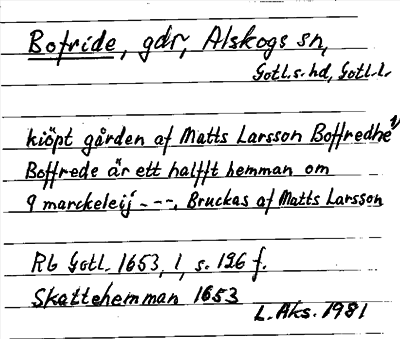 Bofride, gdr, Alskogs sn,
Gotl.s.hd, Gotl.l.
kiöpt gården af Matts Larsson Boffredhe
Boffrede är ett halfft hemman om
9 marckeleij ---, Bruckas af Matts Larsson
Rb Gotl. 1653, 1, s. 126 f.
Skattehemman 1653
L. Aks. 1981